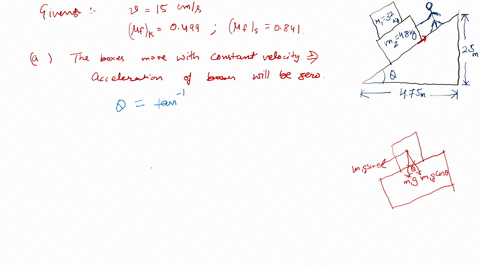 Given :- v = 15 cm/s
(μf)k = 0.499 ; (μf)s = 0.841.
(a) The boxes move with constant velocity ⇒
Acceleration of boxes will be zero.
θ = tan⁻¹
m₂=48kg
θ
2.5
m
4.75m
m₁gsinθ
θ
m₁g
m₁gcosθ